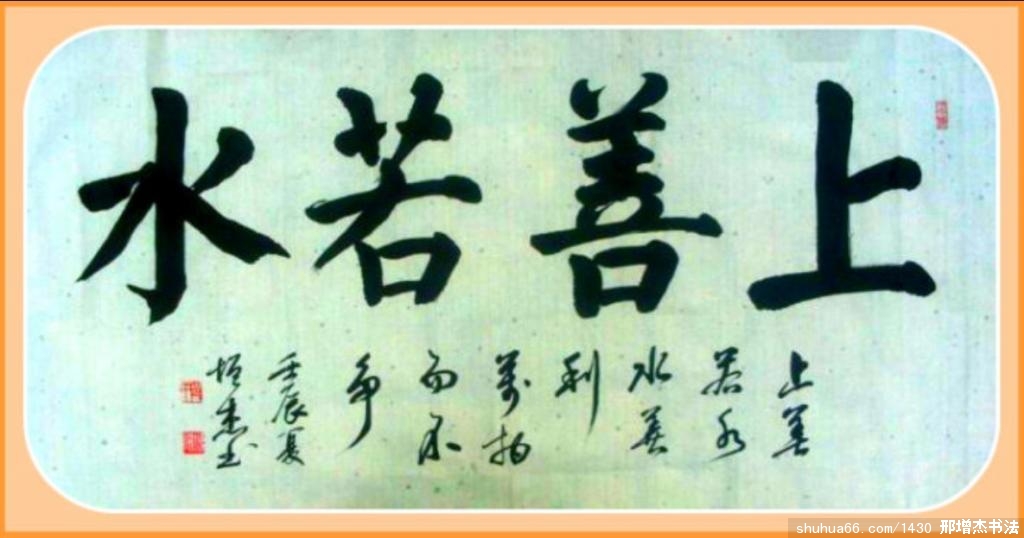 上善若水
上善
若水
水善
利
万物
而不
争
壬辰夏
增杰书
shuhua66.com/1430 邢增杰书法